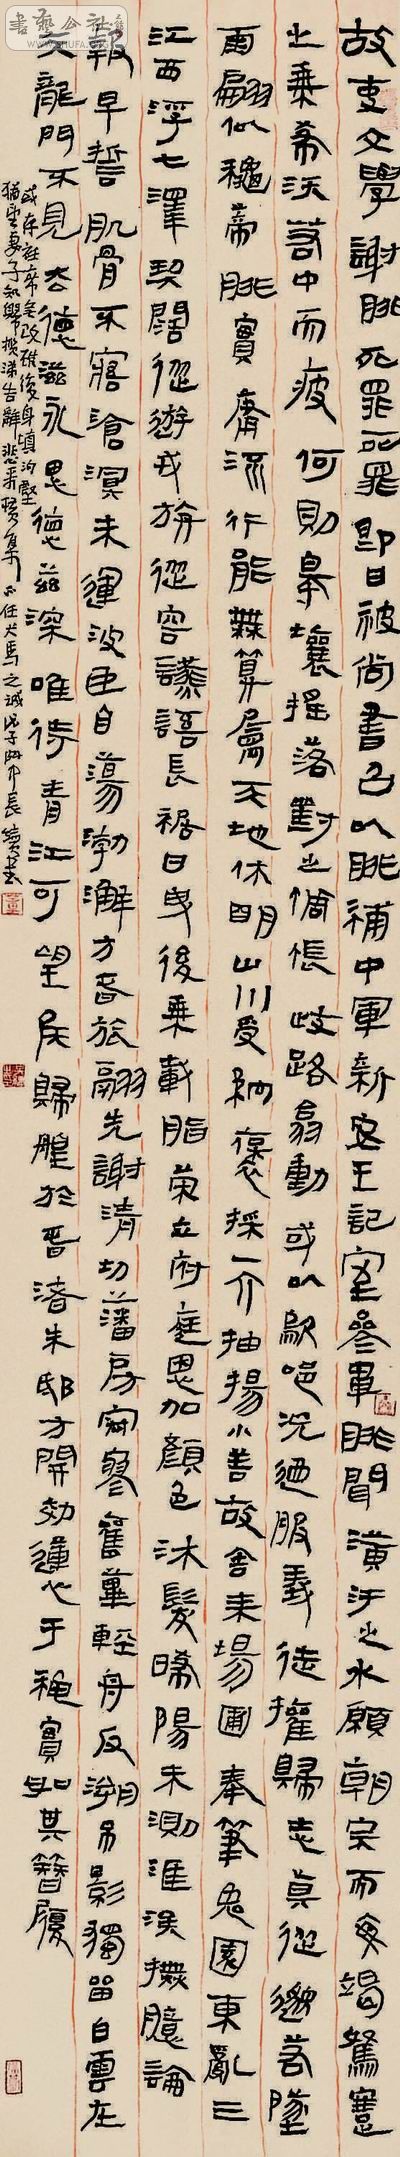 故吏文學謝朓死罪死罪即日被尚書召以朓補中軍新安王記室參軍朓聞潢汙之水願朝宗而每竭駑蹇
之乘希沃若中而疲何則皋壤搖落對之惆悵歧路翕動或以歍唈況迺服義徒擁歸志莫從邈若墜
雨翩似穐蒂朓實庸流行能無算屬天地休明山川受納褒採一介抽揚小善故舍耒場圃奉筆兔園東亂三
江西浮七澤契闊從遊戎旃從容讌語長裾日曳後乘載脂榮立府庭恩加顏色沐髮晞陽未測涯涘撫臆論
報早誓肌骨不寤滄溟未運波臣自蕩渤澥方春旅翮先謝清切藩房寂寥舊蓽輕舟反溯弔影獨留白雲在
天龍門不見去德滋永思德茲深唯待青江可望候歸艎於春渚朱邸方開効蓬心于穐實如其簪履
或存衽席無改雖復身填溝壑
猶望妻子知歸攬涕告辭悲來橫集不任犬馬之誠